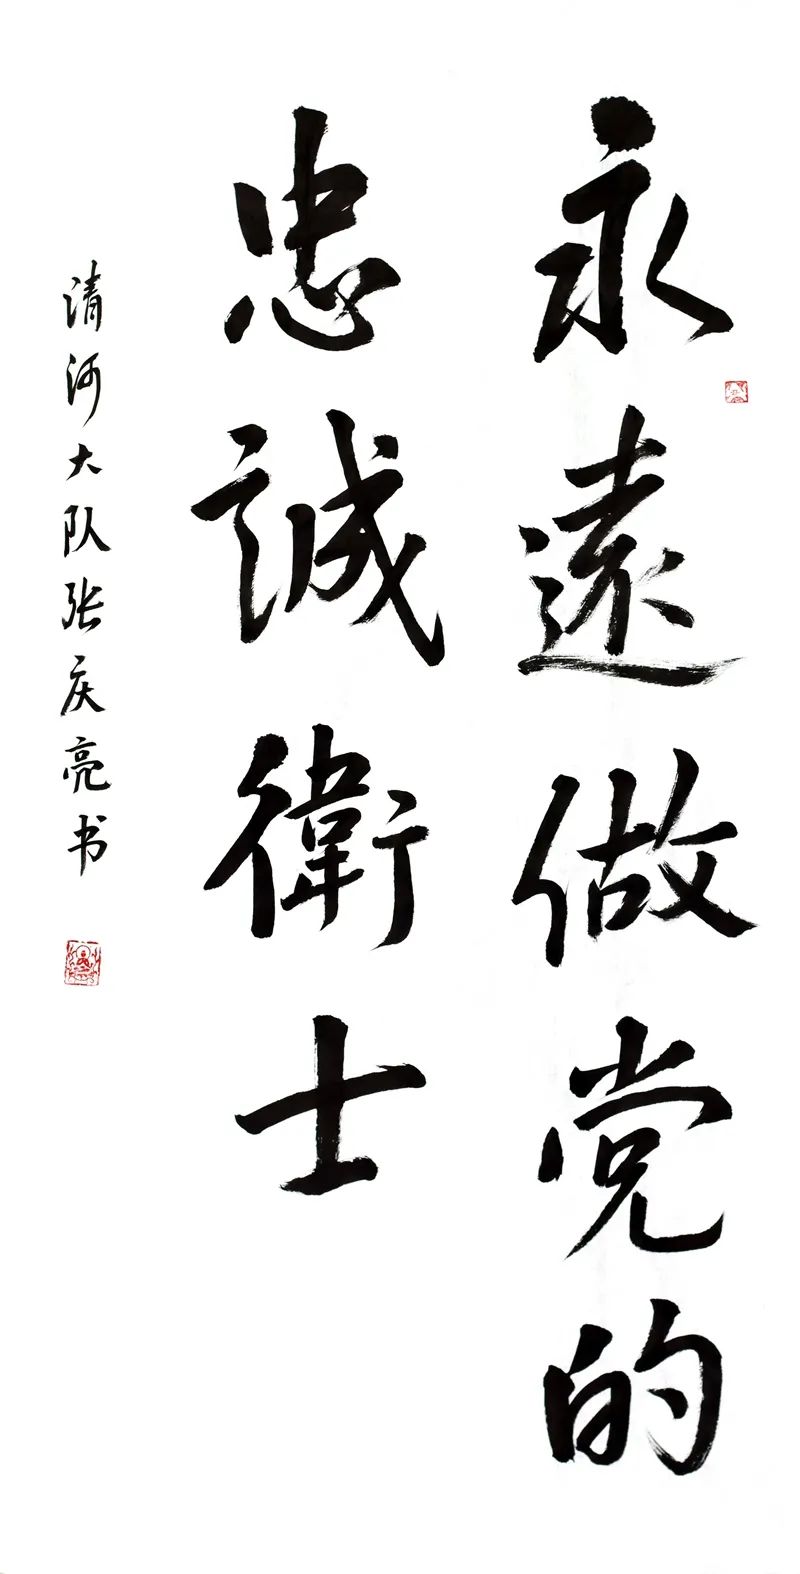 永遠做党的
忠誠衛士
清河大队张庆亮书